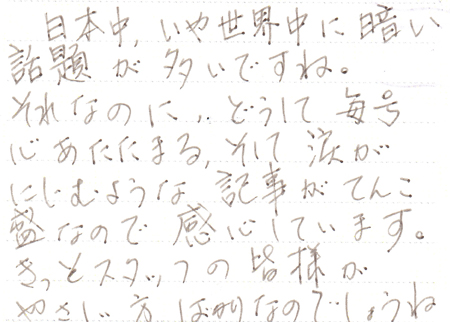 日本中、いや世界中に暗い
話題が多いですね。
それなのに、どうして毎号
心あたたまる、そして涙が
にじむような記事がてんこ
盛なので感心しています。
きっとスタッフの皆様が
やさしい方ばかりなのでしょうね